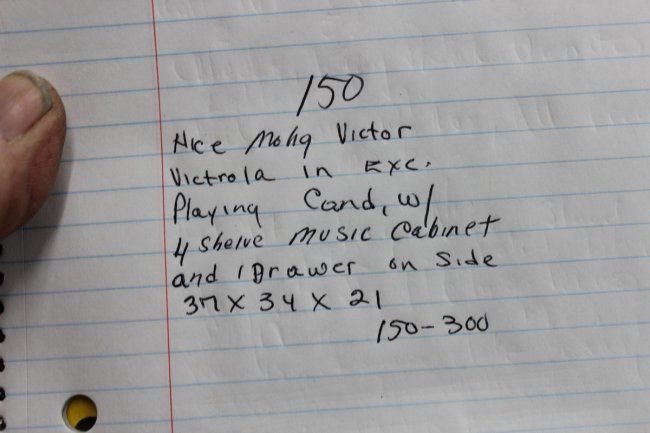 150
Nice Mohg Victor
Victrola in Exc.
Playing Cond, w/
4 Shelve music Cabinet
and 1 Drawer on Side
37 X 34 X 21
150-300